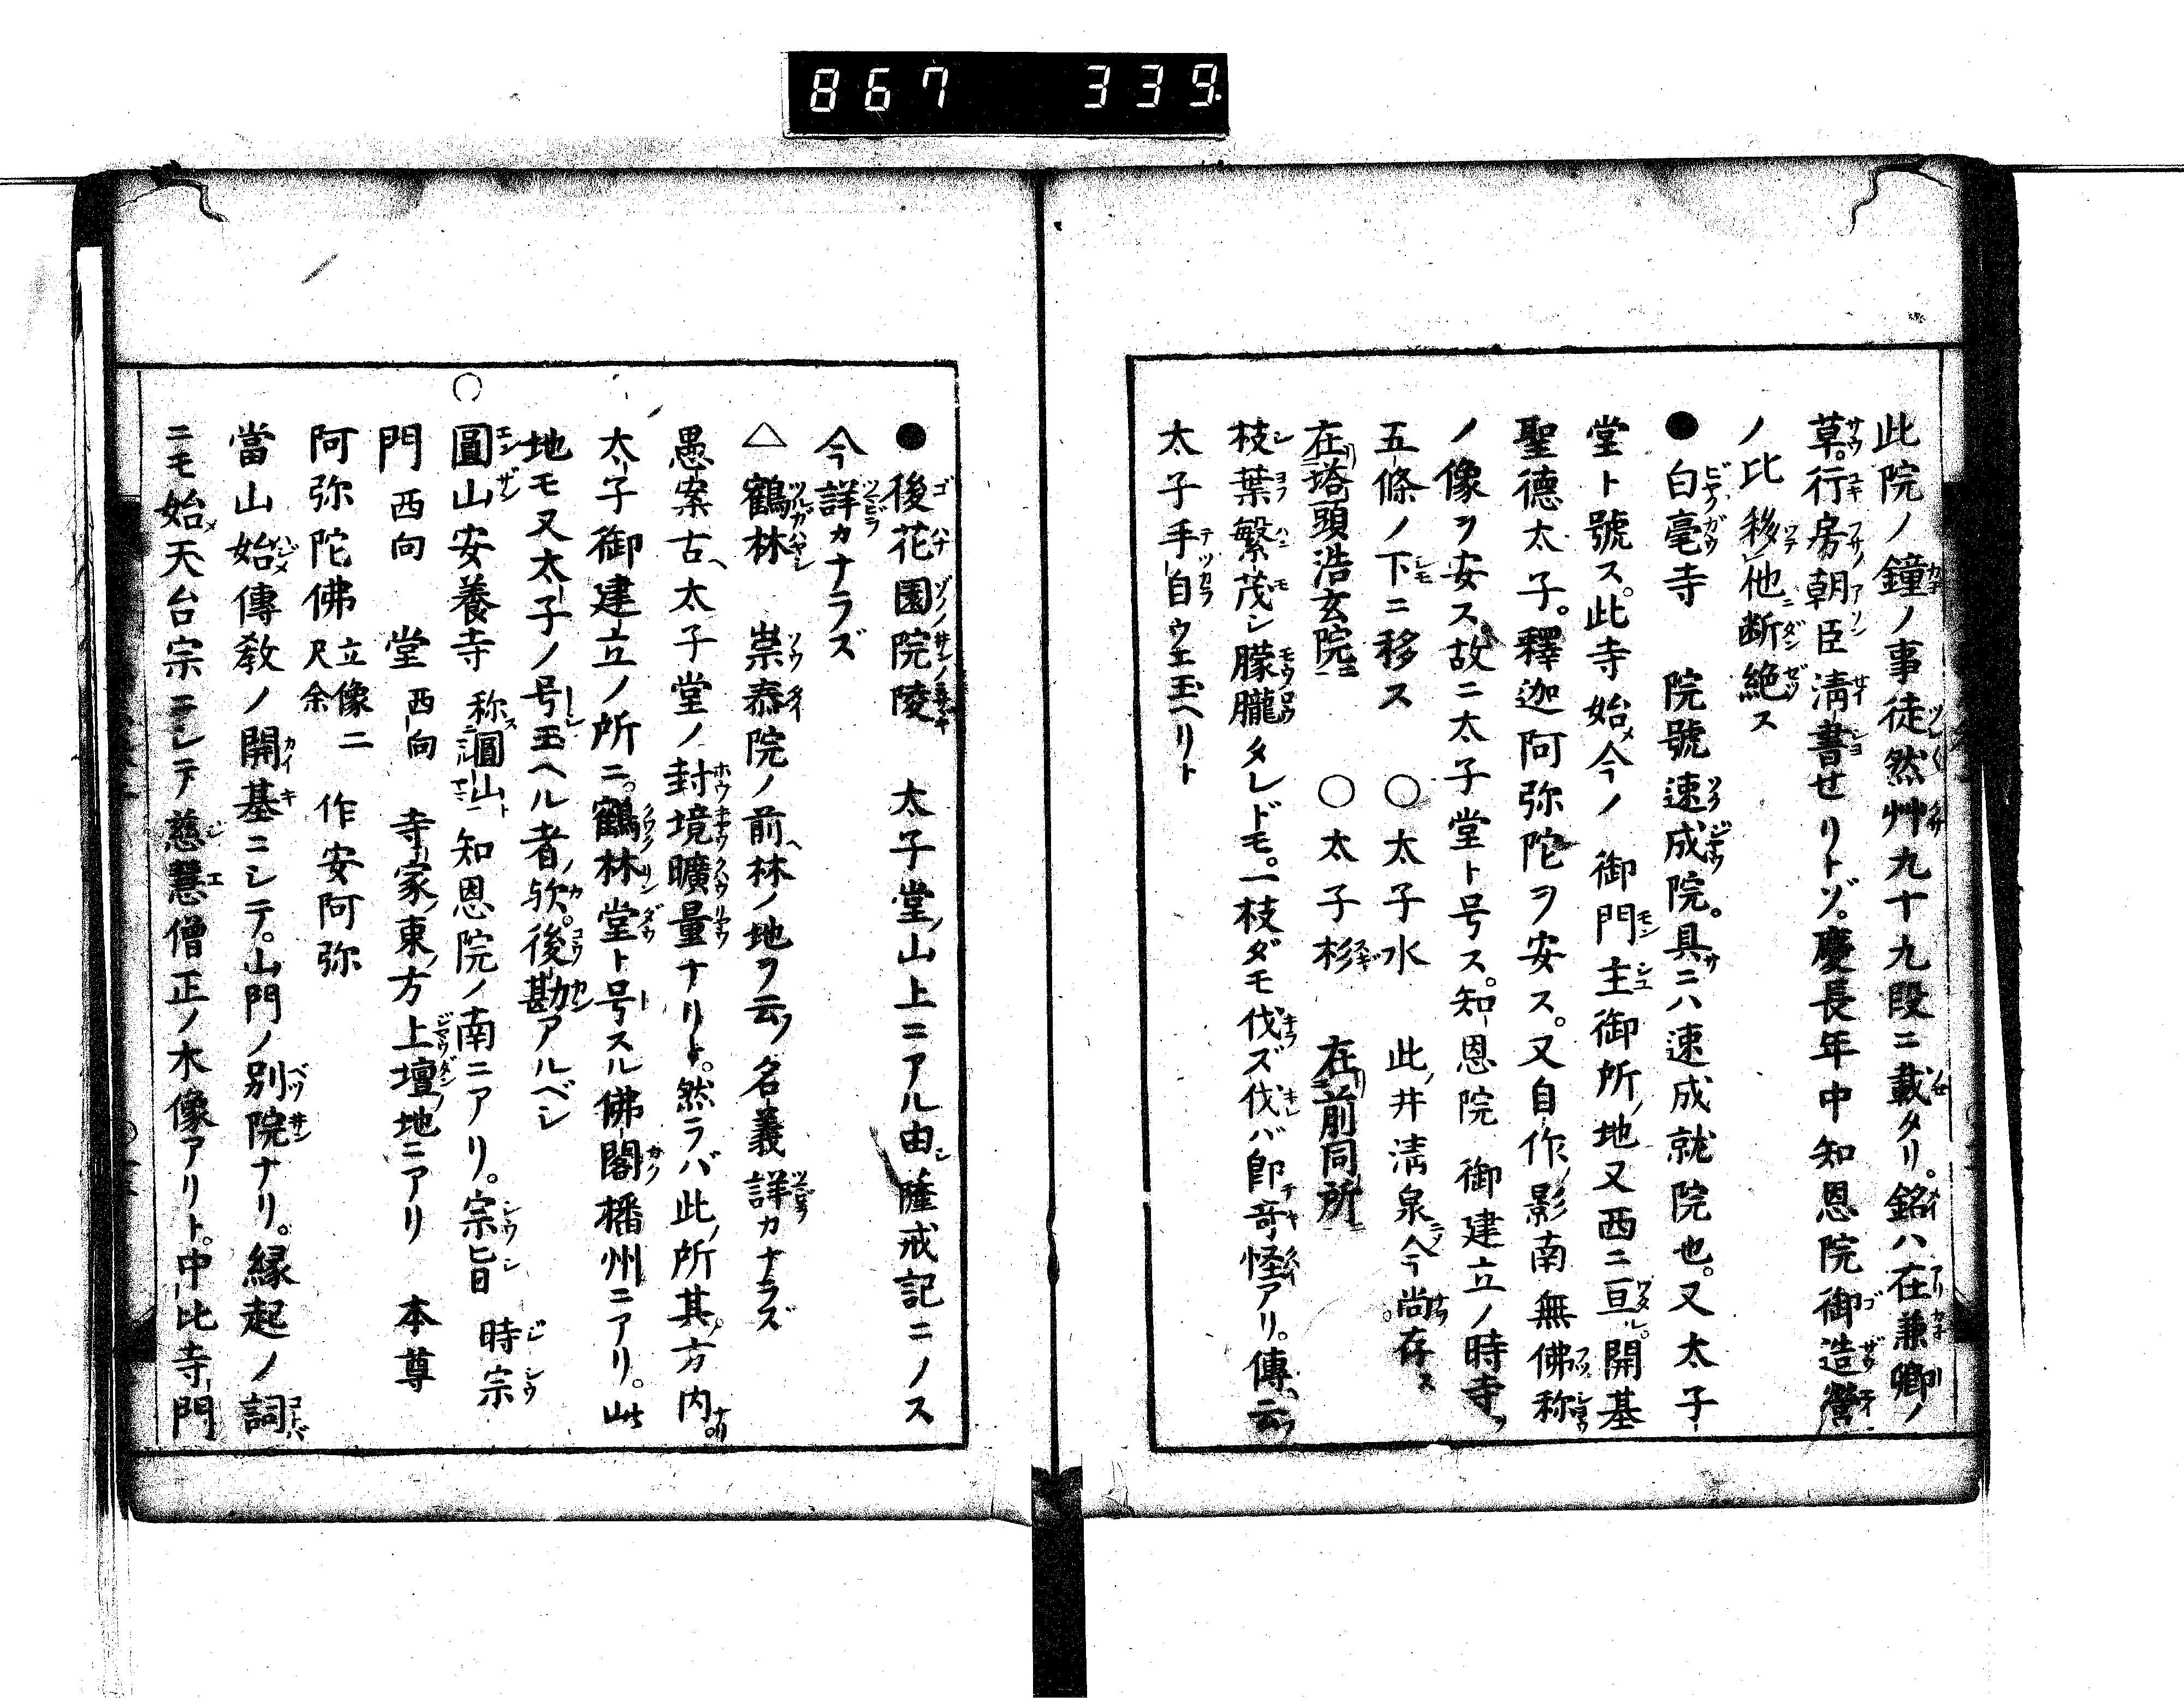 867 339
此院ノ鐘ノ事徒然艸九十九段ニ載タリ。銘ハ在兼卿ノ
草。行房朝臣清書せリトゾ。慶長年中知恩院御造營
ノ比移他断絶ス
●白毫寺 院號速成院。具ニハ速成就院也。又太子
堂ト號ス。此寺始メ今ノ 御門主御所ノ地又西ニ亘ル。開基
聖德太子。釋迦阿弥陀ヲ安ス。又自作ノ影南無佛称
ノ像ヲ安ス故ニ太子堂ト号ス。知恩院 御建立ノ時寺ヲ
五條ノ下ニ移ス 〇太子水 此ノ井淸泉今尚存ス
在塔頭浩玄院ニ 〇太子杉 在前同所
枝葉繁茂シ朦朧タレドモ。一枝ダモ伐ズ伐バ卽奇怪アリ。傳ヘ云フ
太子手自ウエ玉ヘリト
●後花園院陵 太子堂ノ山上ニアル由薩戒記ニノス
今詳カナラズ
△鶴林 崇泰院ノ前ヘ林ノ地ヲ云フ名義詳カナラズ
愚案古ヘ太子堂ノ封境曠量ナリト。然ラバ此ノ所其ノ方内ナリ。
太子御建立ノ所ニ。鶴林堂ト号スル佛閣播州ニアリ。此
地モ又太子ノ号シ玉ヘル者ノ欤。後勘アルベシ
〇圓山安養寺 称圓山ト 知恩院ノ南ニアリ。宗旨 時宗
門 西向 堂 西向 寺家ノ東ノ方上壇ノ地ニアリ 本尊
阿弥陀佛 立像二尺余 作安阿弥
當山始メ傳敎ノ開基ニシテ。山門ノ別院ナリ。縁起ノ詞
ニモ始メ天台宗ニシテ慈慧僧正ノ木像アリト。中比寺門